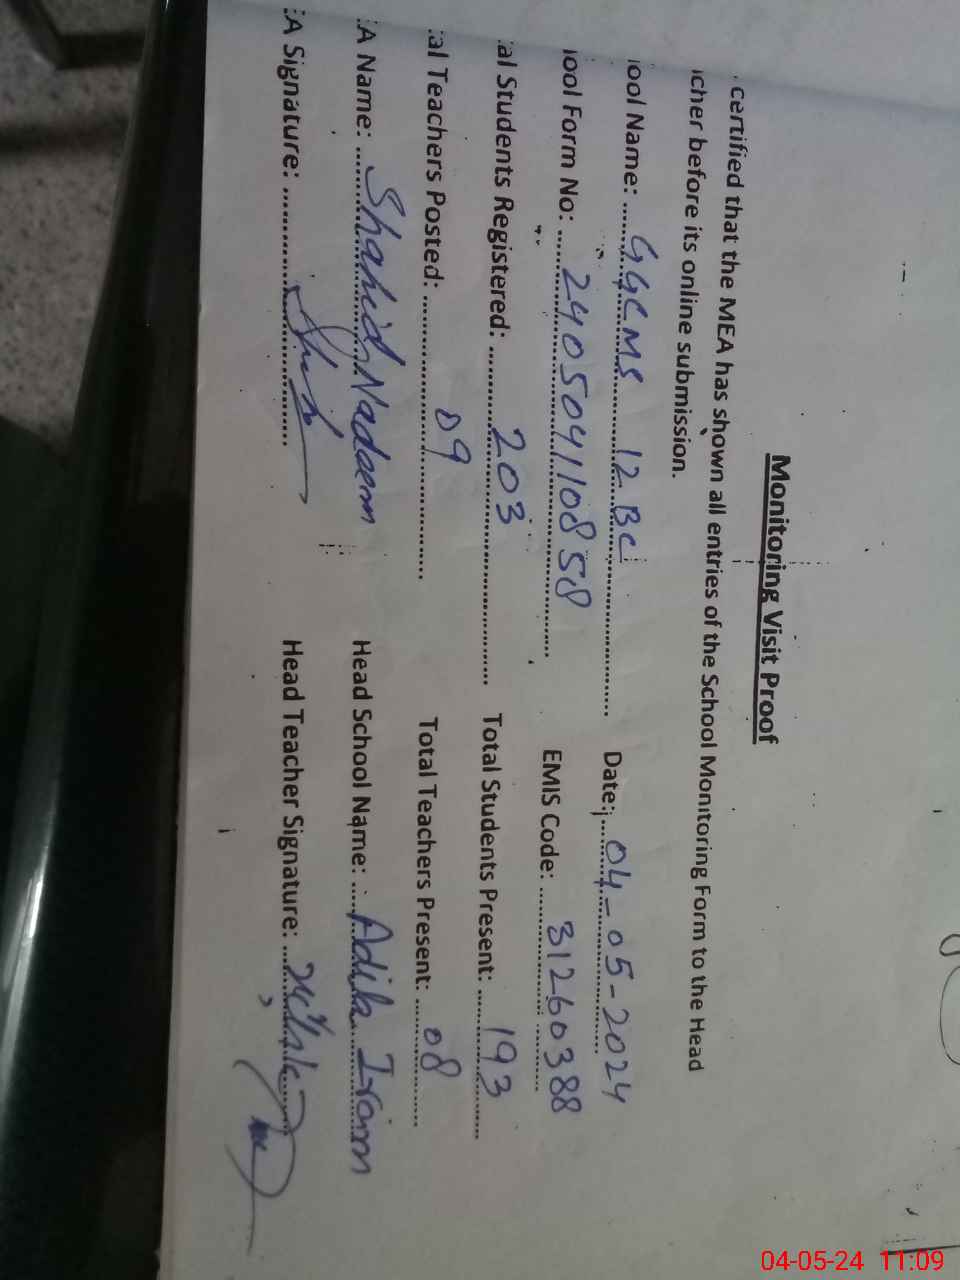 Monitoring Visit Proof
certified that the MEA has shown all entries of the School Monitoring Form to the Head
cher before its online submission.
ool Name: GGCMS 12 BC Date: 04-05-2024
ool Form No: 240504110858 EMIS Code: 31260388
al Students Registered: 203 Total Students Present: 193
al Teachers Posted: 09 Total Teachers Present: 08
A Name: Shahid Nadeem Head School Name: Adila Iram
A Signature: Head Teacher Signature:
04-05-24 11:09